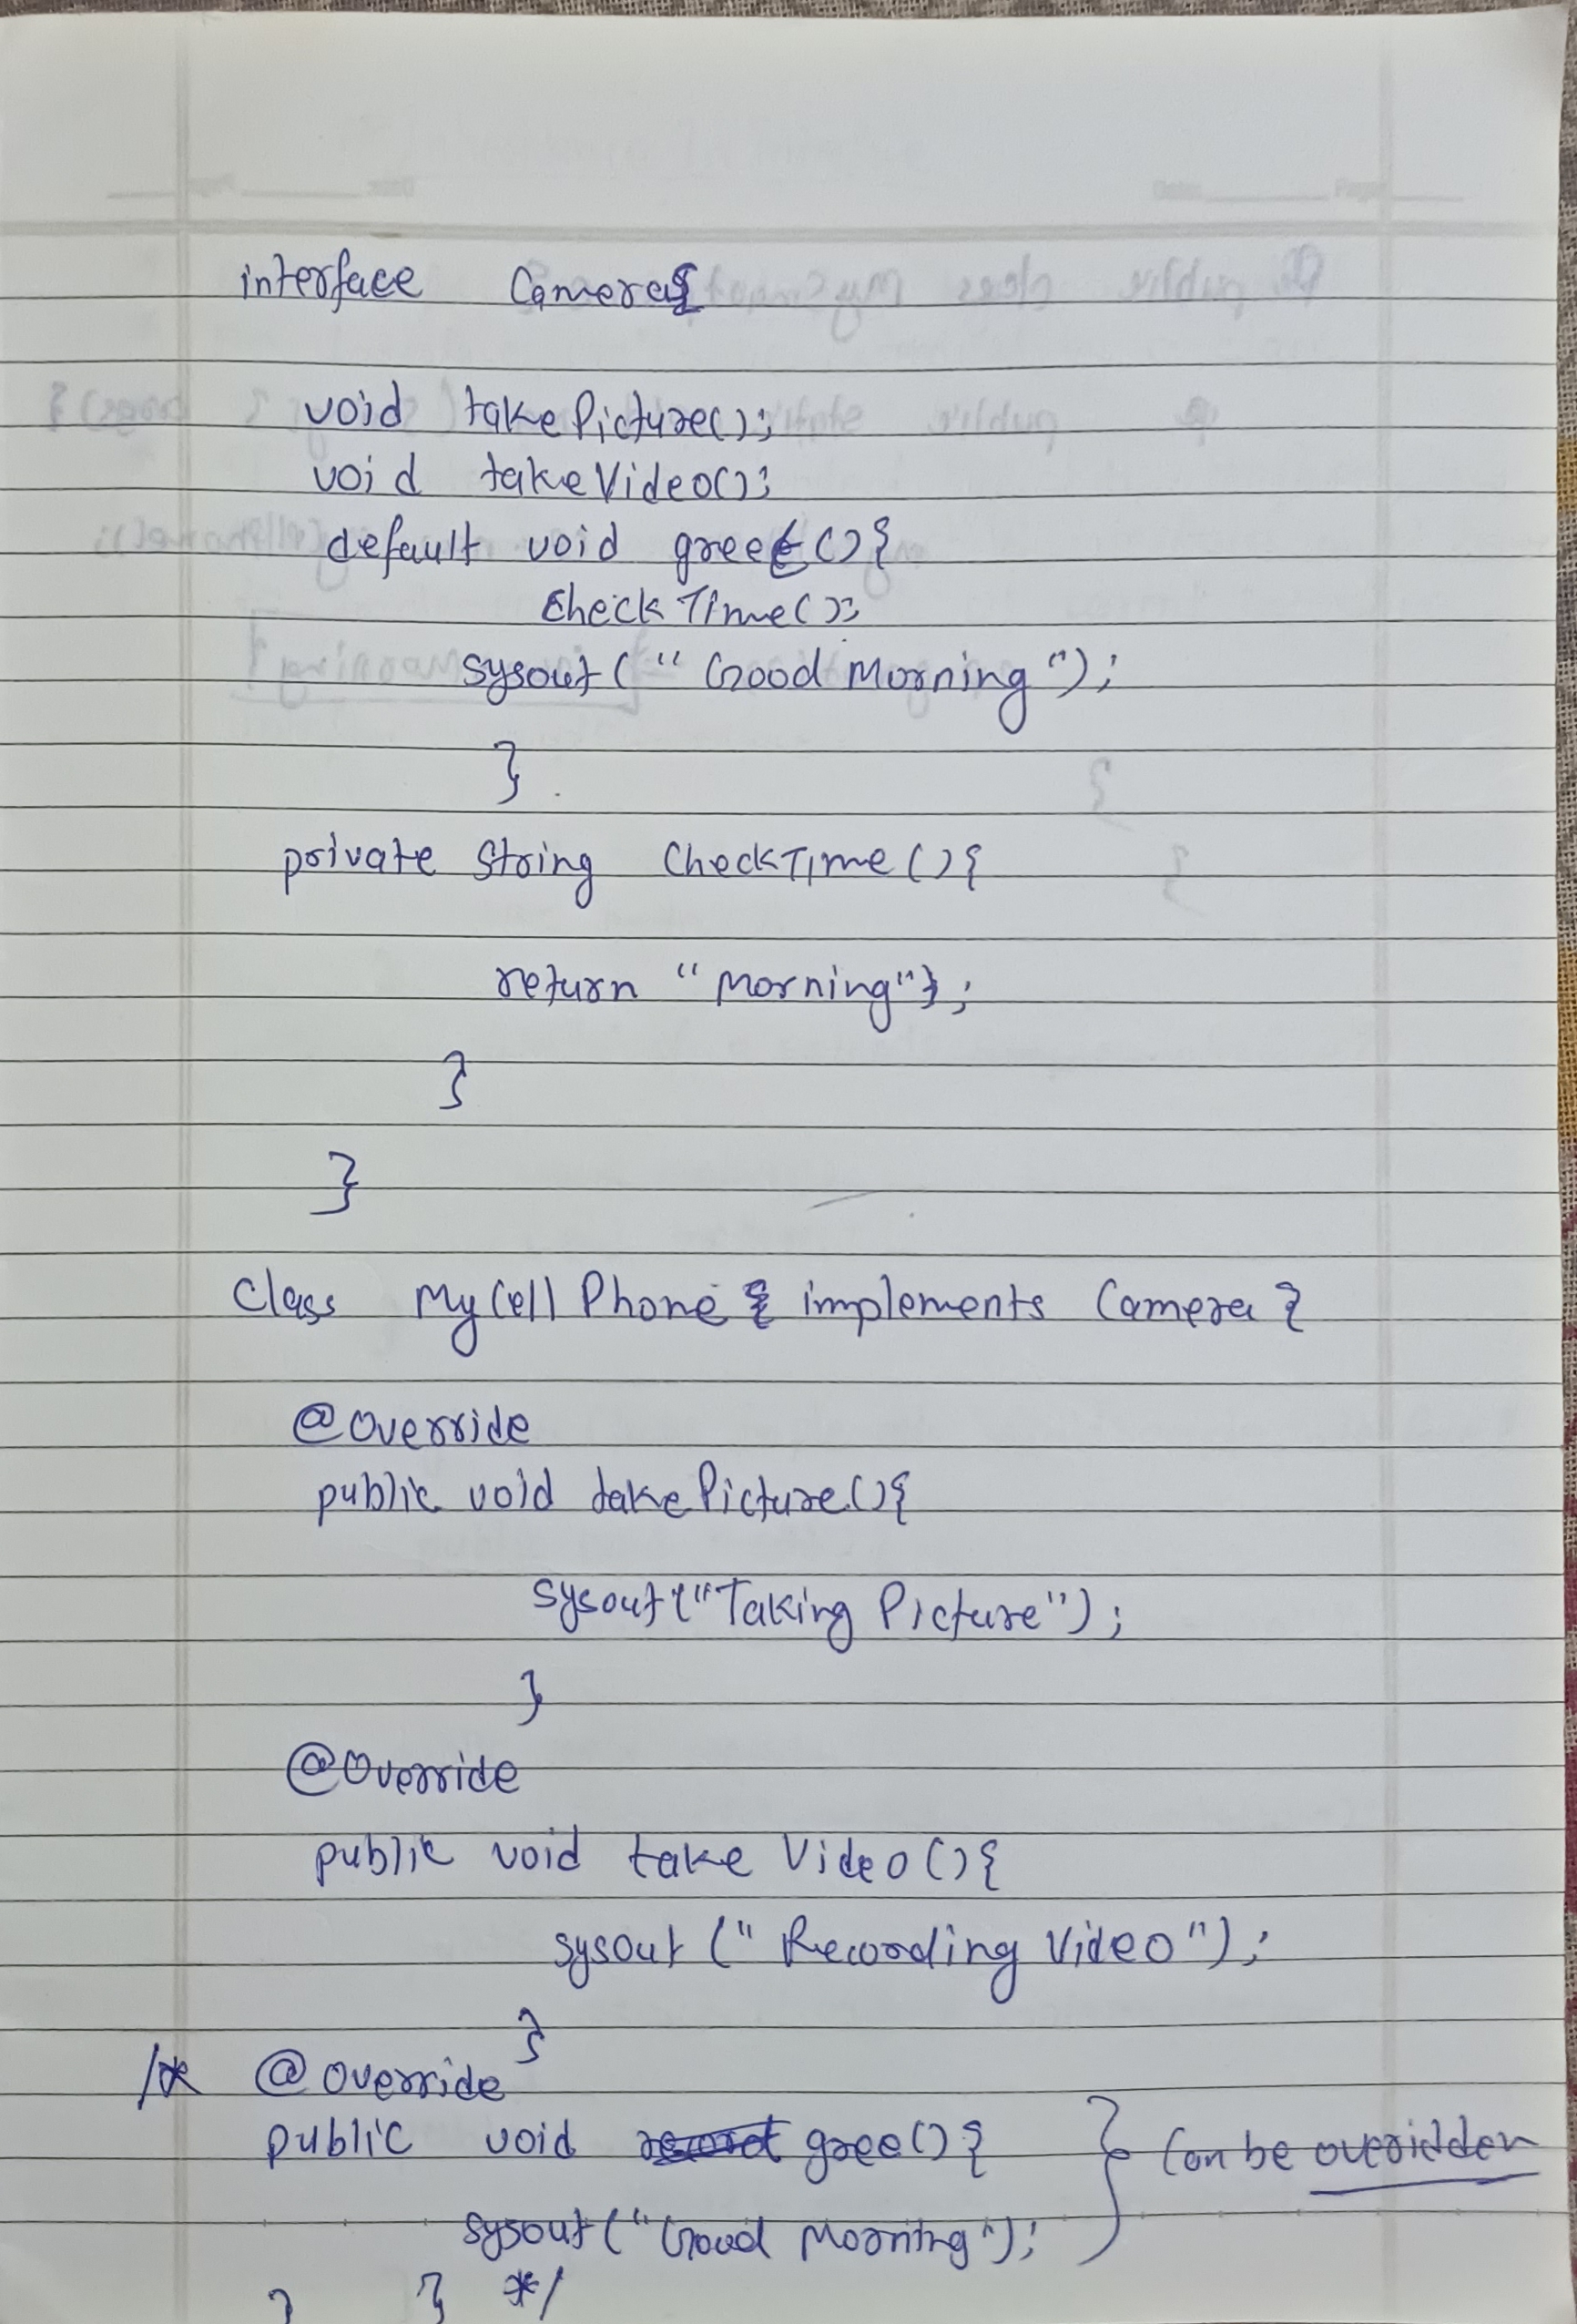 interface Camera{
void takePicture();
void takeVideo();
default void greet(){
checkTime();
sysout("Good Morning");
}
private String CheckTime(){
return "Morning";
}
}
Class MyCellPhone implements Camera {
@Override
public void takePicture(){
sysout("Taking Picture");
}
@Override
public void take Video(){
sysout ("Recording Video");
}
/* @override
public void gree(){ } Can be overidden
sysout("Good Morning");
} } */